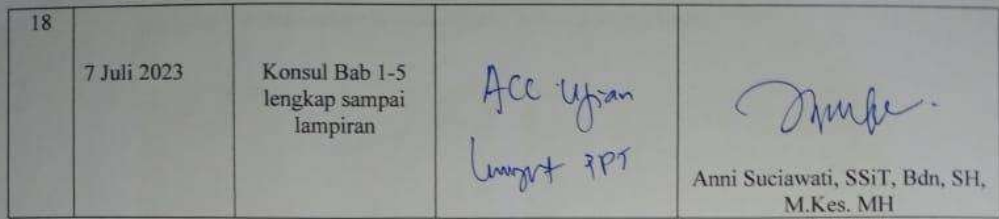 18
7 Juli 2023
Konsul Bab 1-5
lengkap sampai
lampiran
ACC Ujian
lanjut PPT
Anni Suciawati, SSiT, Bdn, SH,
M.Kes. MH